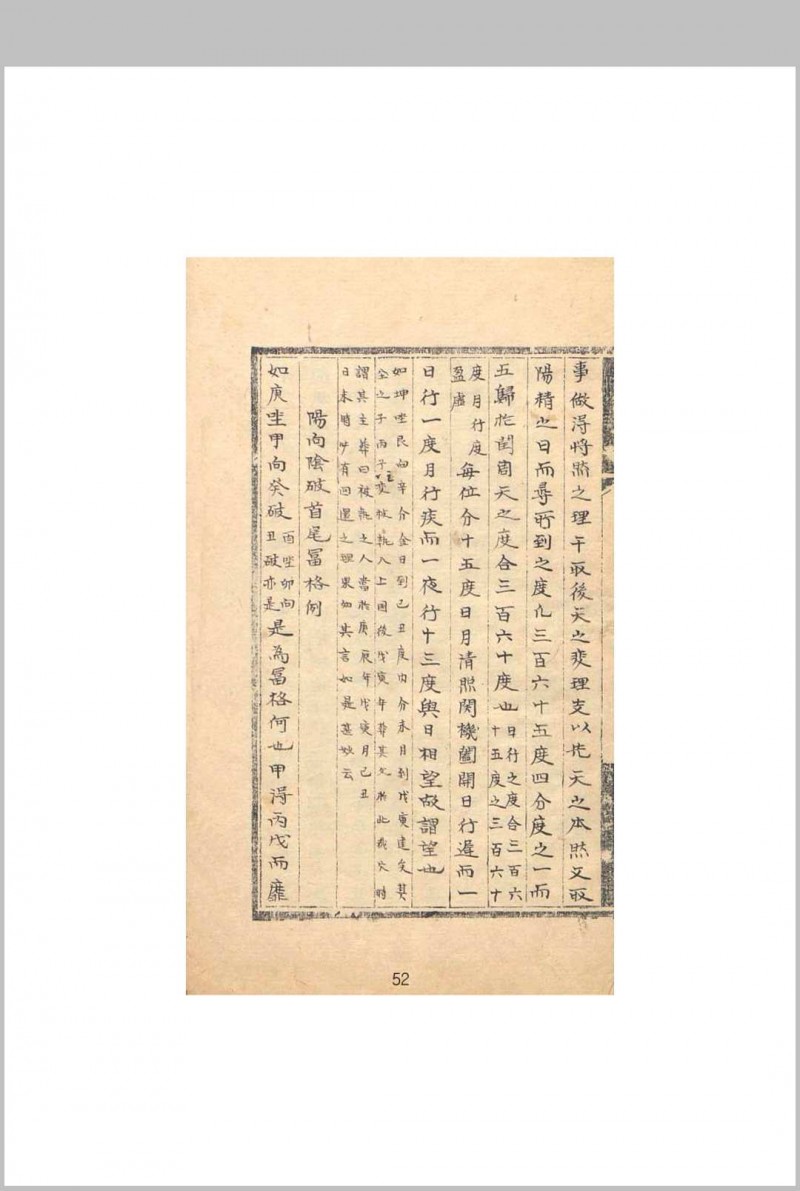 事做得將照之理干取後天之爽理支以先天之本然又取
陽精之日而尋所到之度凡三百六十五度四分度之一而
五歸於閏周天之度合三百六十度也日行之度合三百六
十五度之三百六十
度月行度
盈虛
每位分十五度日月清照関機闔開日行遲而一
日行一度月行疾而一夜行十三度與日相望故謂望也
如坤坐艮向辛分金日到己丑度內分金月到戊寅度矣其
全之子丙子生変被執入上国後戊寅年葬其父於此飛火時
謂其主葬曰被執之人當於庚辰年戊寅月己丑
日未時少有回還之理果如其言如是甚妙云
陽向陰破首尾冨格例
如庚坐甲向癸破
酉坐卯向
丑破亦是
是為冨格何也甲得丙戊而靡
52